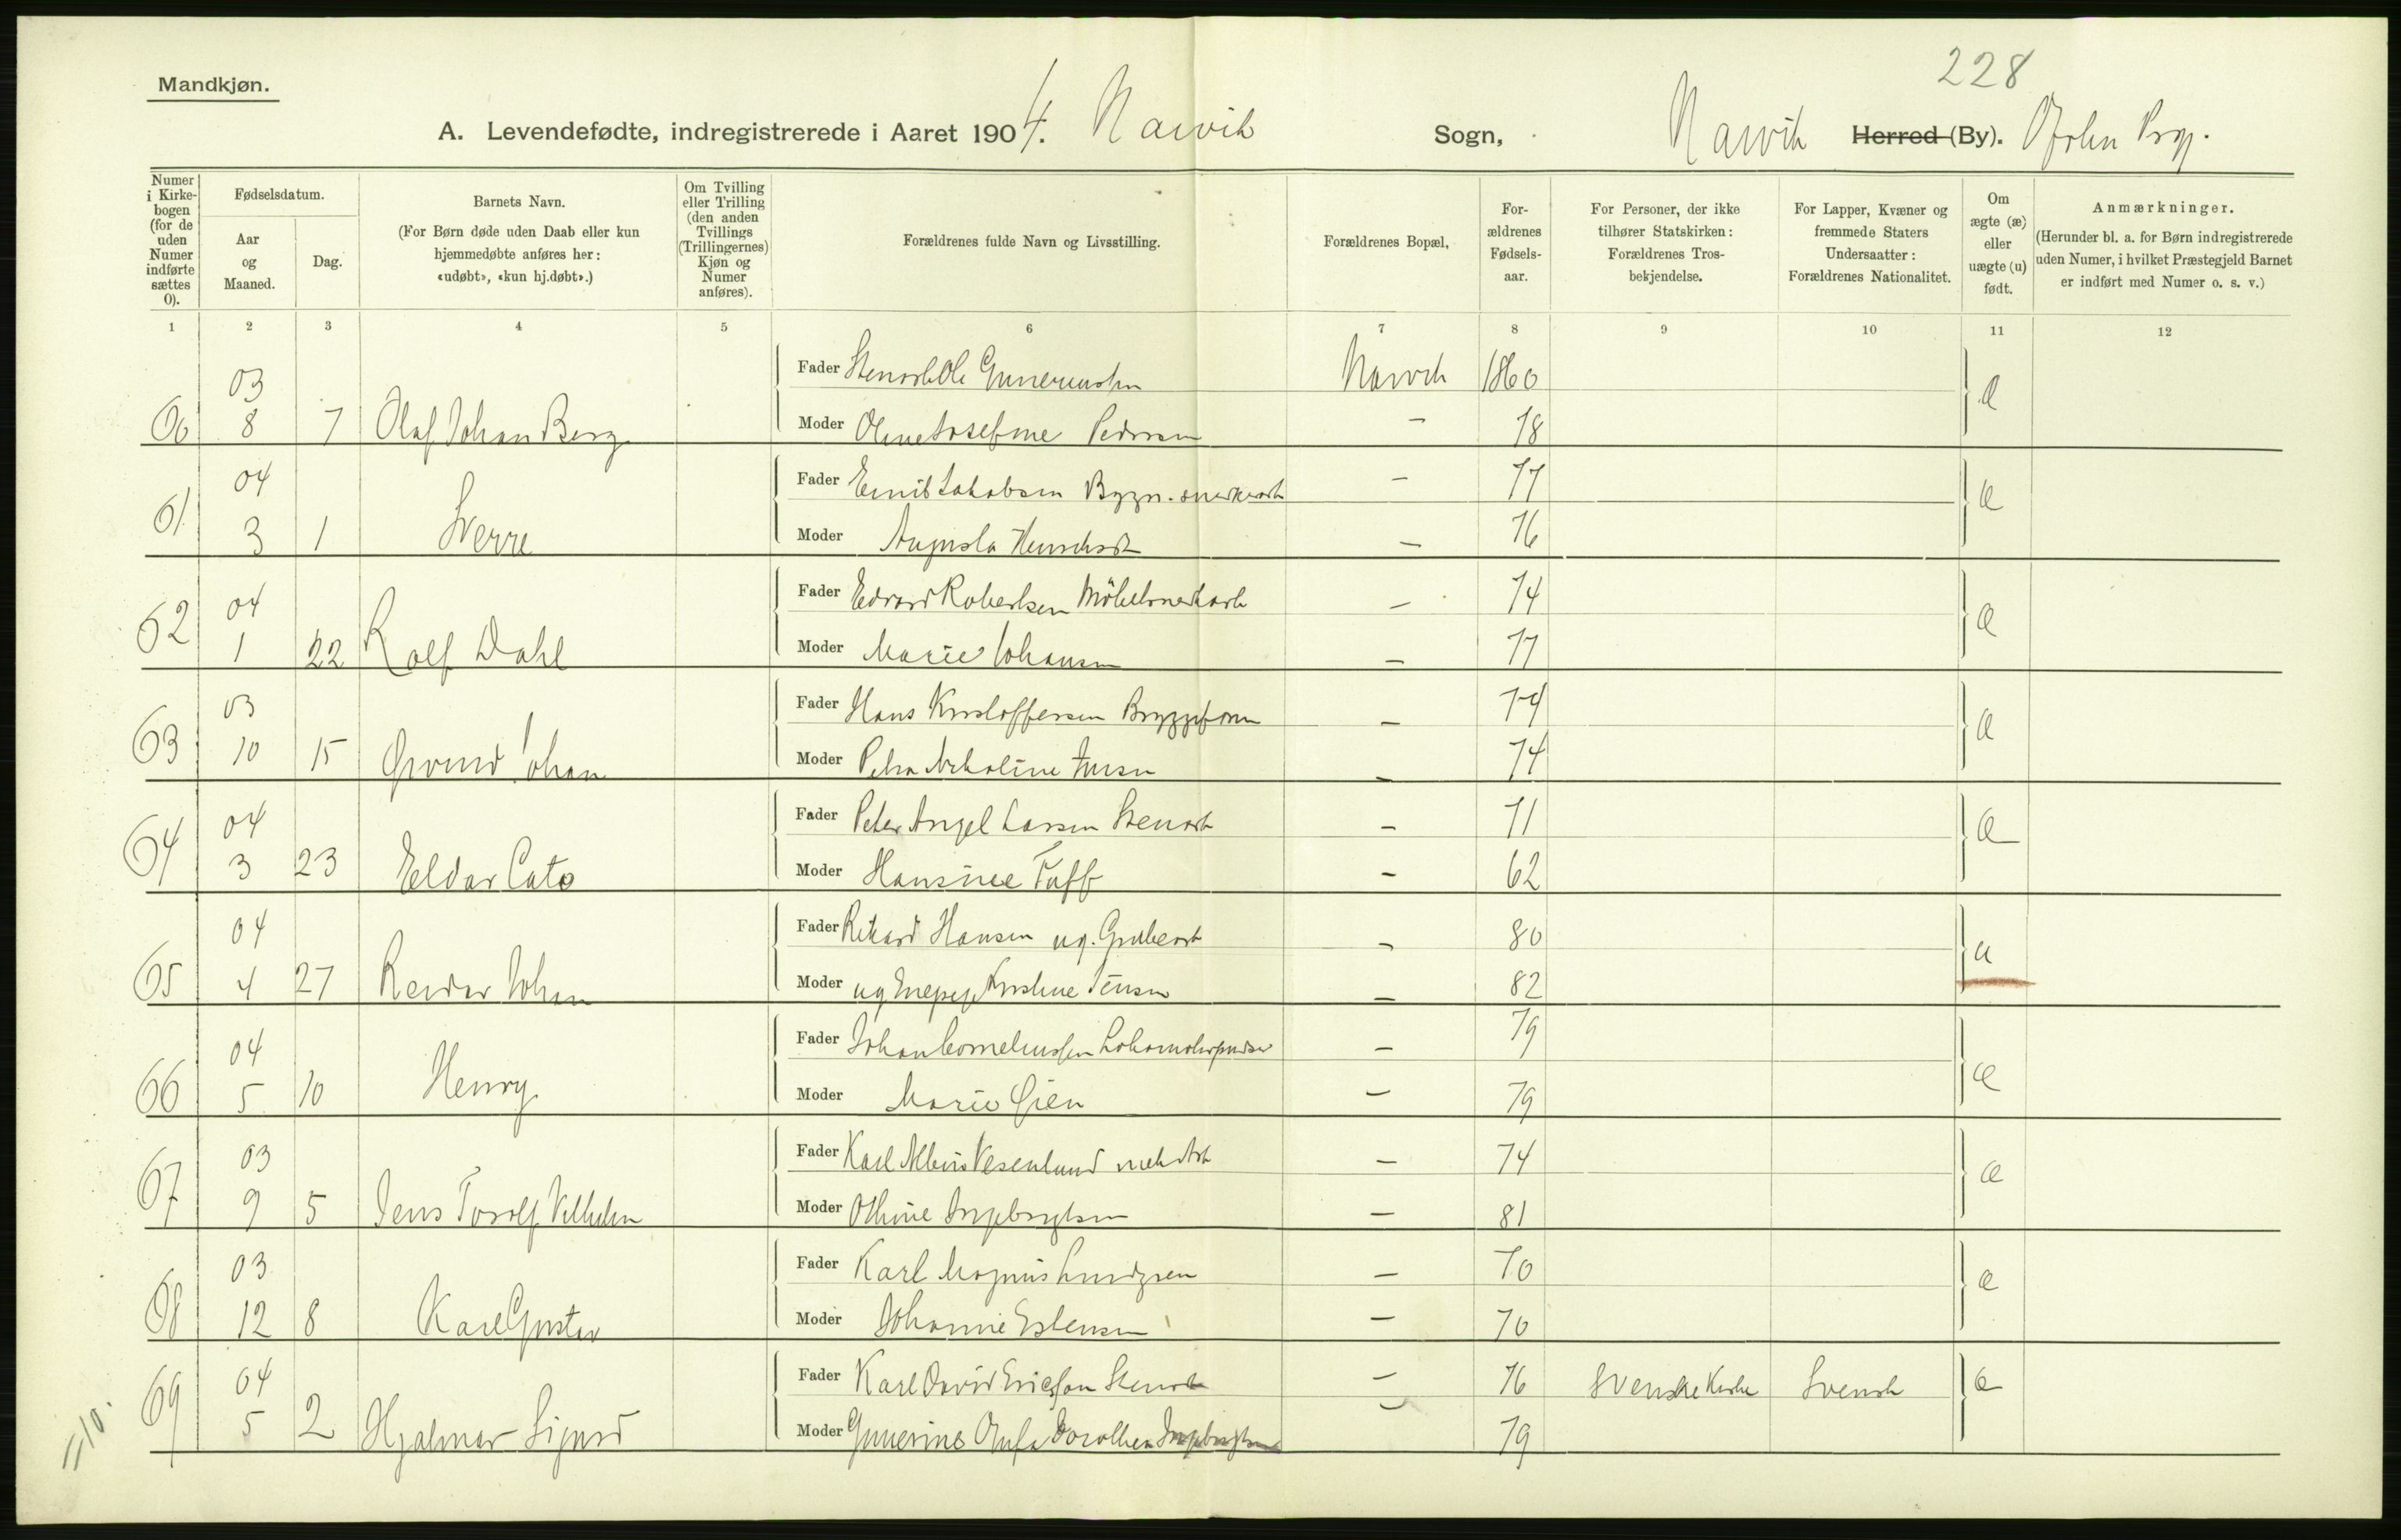 228
Mandkjøn.
A. Levendefødte, indregistrerede i Aaret 1904. Narvik Sogn, Narvik Herred (By). Ofoten Prgj.
Numer i Kirkebogen (for de uden Numer indførte sættes 0).
Fødselsdatum.
Aar og Maaned.
Dag.
Barnets Navn.
(For Børn døde uden Daab eller kun hjemmedøbte anføres her: «udøbt», «kun hj.døbt».)
Om Tvilling eller Trilling (den anden Tvillings (Trillingernes) Kjøn og Numer anføres).
Forældrenes fulde Navn og Livsstilling.
Forældrenes Bopæl,
For-ældrenes Fødsels-aar.
For Personer, der ikke tilhører Statskirken: Forældrenes Tros-bekjendelse.
For Lapper, Kvæner og fremmede Staters Undersaatter: Forældrenes Nationalitet.
Om ægte (æ) eller uægte (u) født.
Anmærkninger.
(Herunder bl. a. for Børn indregistrerede uden Numer, i hvilket Præstegjeld Barnet er indført med Numer o. s. v.)
1 2 3 4 5 6 7 8 9 10 11 12
03 Fader Stenarb Ole Gunneriussen Narvik 1860 æ
60 8 7 Olaf Johan Berg Moder Oline Josefine Pedersen — 78
04 Fader Emil Jakobsen Bygn. snedkerarb — 77 æ
61 3 1 Sverre Moder Augusta — 76
04 Fader Edvard Robertsen Möbelsnedkarb — 74 æ
62 1 22 Rolf Dahl Moder Marie Johansen — 77
03 Fader Hans Kristoffersen Bryggeform — 74 æ
63 10 15 Øivind Johan Moder Petra Nikoline Jensen — 74
04 Fader Peter Angel Larsen Stenarb — 71 æ
64 3 23 Eldar Cato Moder Hansine Toff — 62
04 Fader Rikard Hansen ug. Grubearb — 80 u
65 4 27 Reidar Johan Moder ug Enepige Kristine Jensen — 82
04 Fader Johan Corneliussen Lokomotivpudser — 79 æ
66 5 10 Henry Moder Marie Gien — 79
03 Fader Karl Albin Vesenlund mek Arb — 74 æ
67 9 5 Jens Torolf Vilhelm Moder Othine Ingebrigtsen — 81
03 Fader Karl Magnus Lundgren — 70 æ
68 12 8 Karl Gustav Moder Johanne Estensen — 70
04 Fader Karl David Ericsson Stenarb — 76 Svenske Kirke Svensk æ
69 5 2 Hjalmar Sigurd Moder Gunerine Olufa Dorothea Ingebrigtsen — 79
=10.